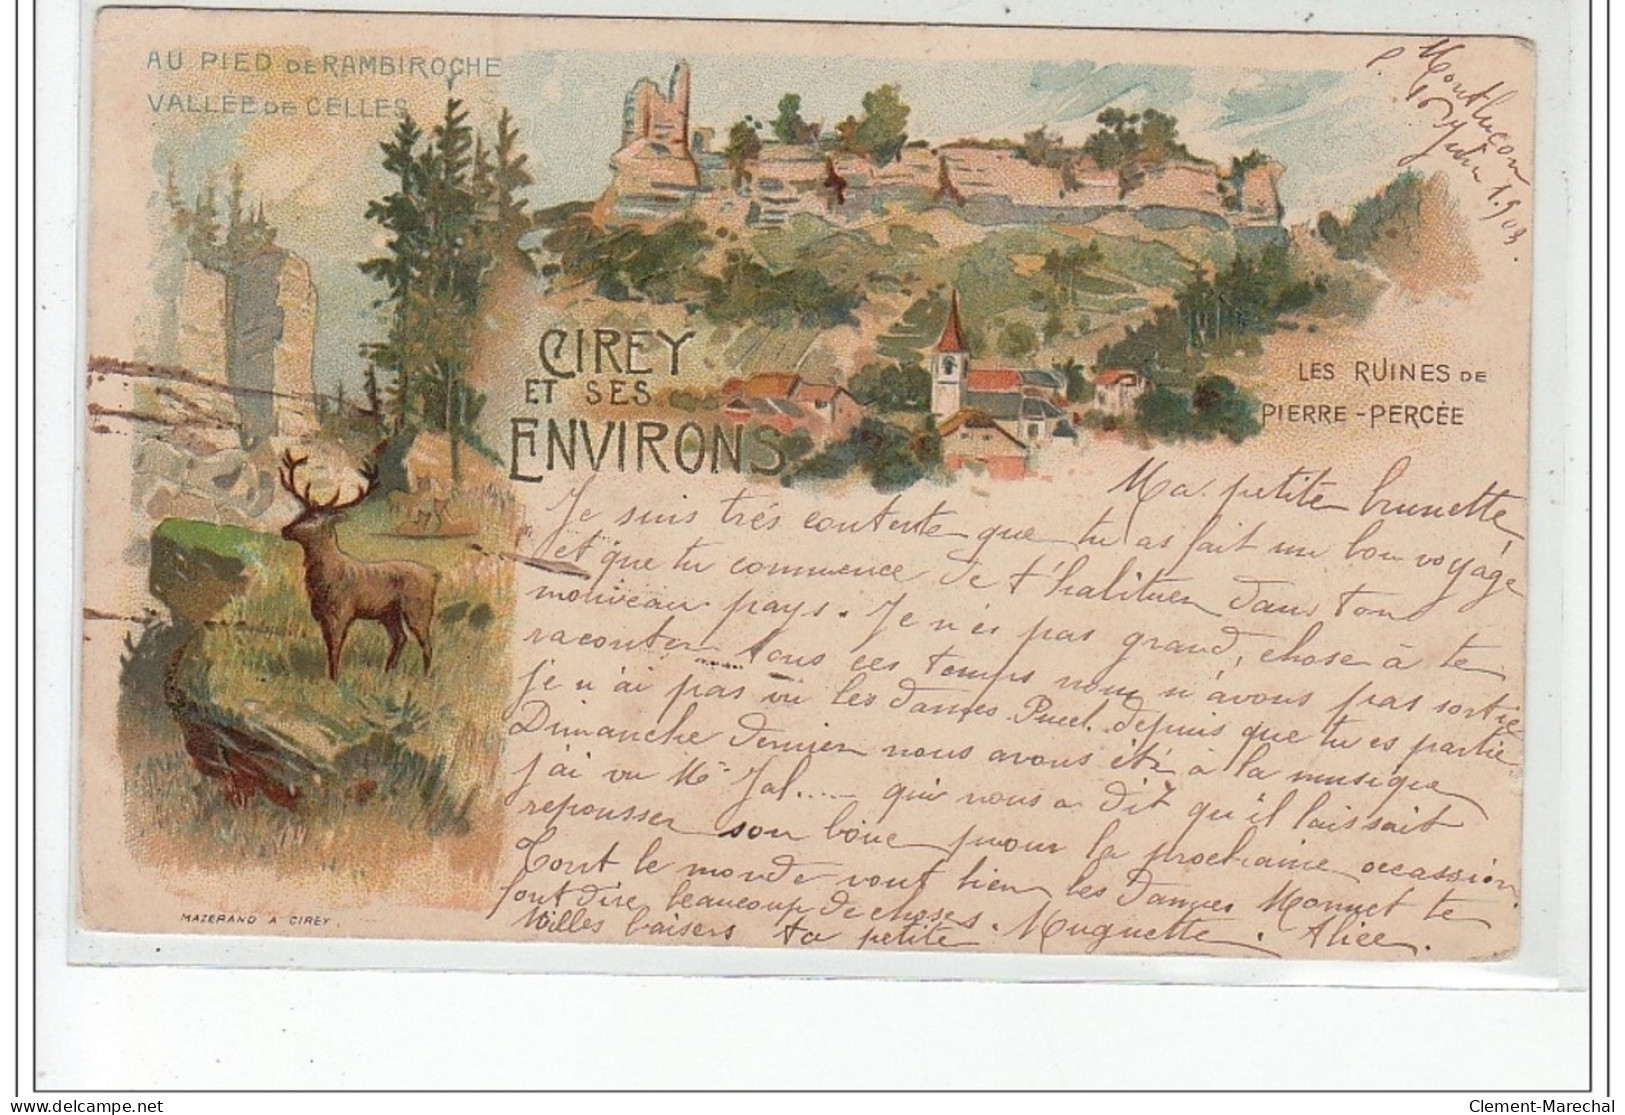 AU PIED DE RAMBIROCHE
VALLÉE DE CELLES
P. Montluçon
16 Juin 1.903
CIREY
ET SES
ENVIRONS
LES RUINES DE
PIERRE-PERCÉE
Ma petite brunette,
Je suis très contente que tu as fait un bon voyage
et que tu commence de t'habituer dans ton
nouveau pays. Je n'ai pas grand, chose à te
raconter tous ces temps nous n'avons pas sortie
je n'ai pas vu les dames Pucel. depuis que tu es partie.
Dimanche dernier nous avons été à la musique
j'ai vu Mr Jal..... qui nous a dit qu'il laissait
repousser son bouc pour la prochaine occassion.
Tout le monde vont bien les dames Monnet te
font dire beaucoup de choses.
Milles baisers ta petite Muguette. Alice.
MAZERAND A CIREY.
delcampe.net
Clement-Marechal